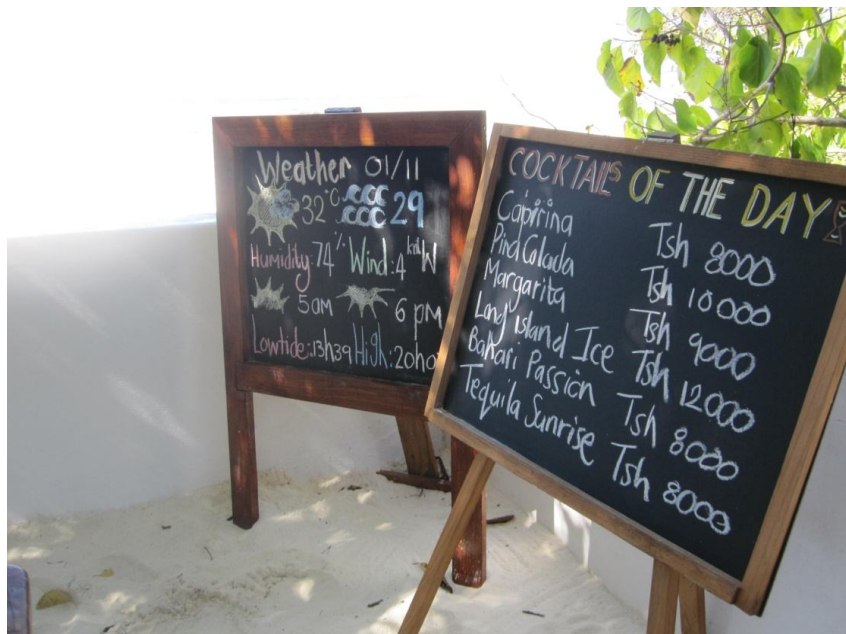 Weather 01/11
32°C 29
Humidity:74% Wind:4 W
5am 6 pm
Lowtide:13h39 High:20h0
COCKTAILS OF THE DAY
Capirina Tsh 8000
Pina Colada Tsh 10000
Margarita Tsh 9000
Long Island Ice Tsh 12000
Bahari Passion Tsh 8000
Tequila Sunrise Tsh 8000